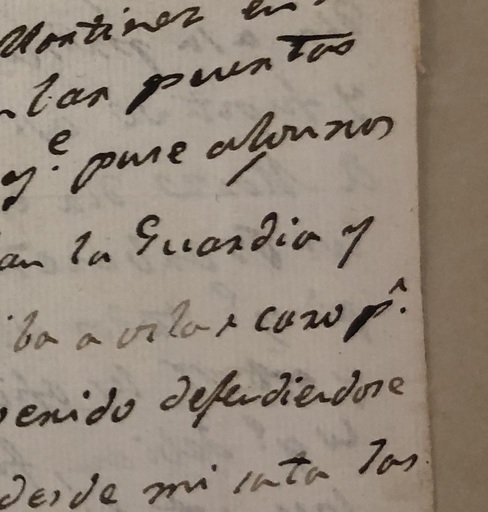 Martinez en
las puertas
y.e puse algunos
an la Guardia y
iba a velar caso p.a
venido defendiendose
desde mi las